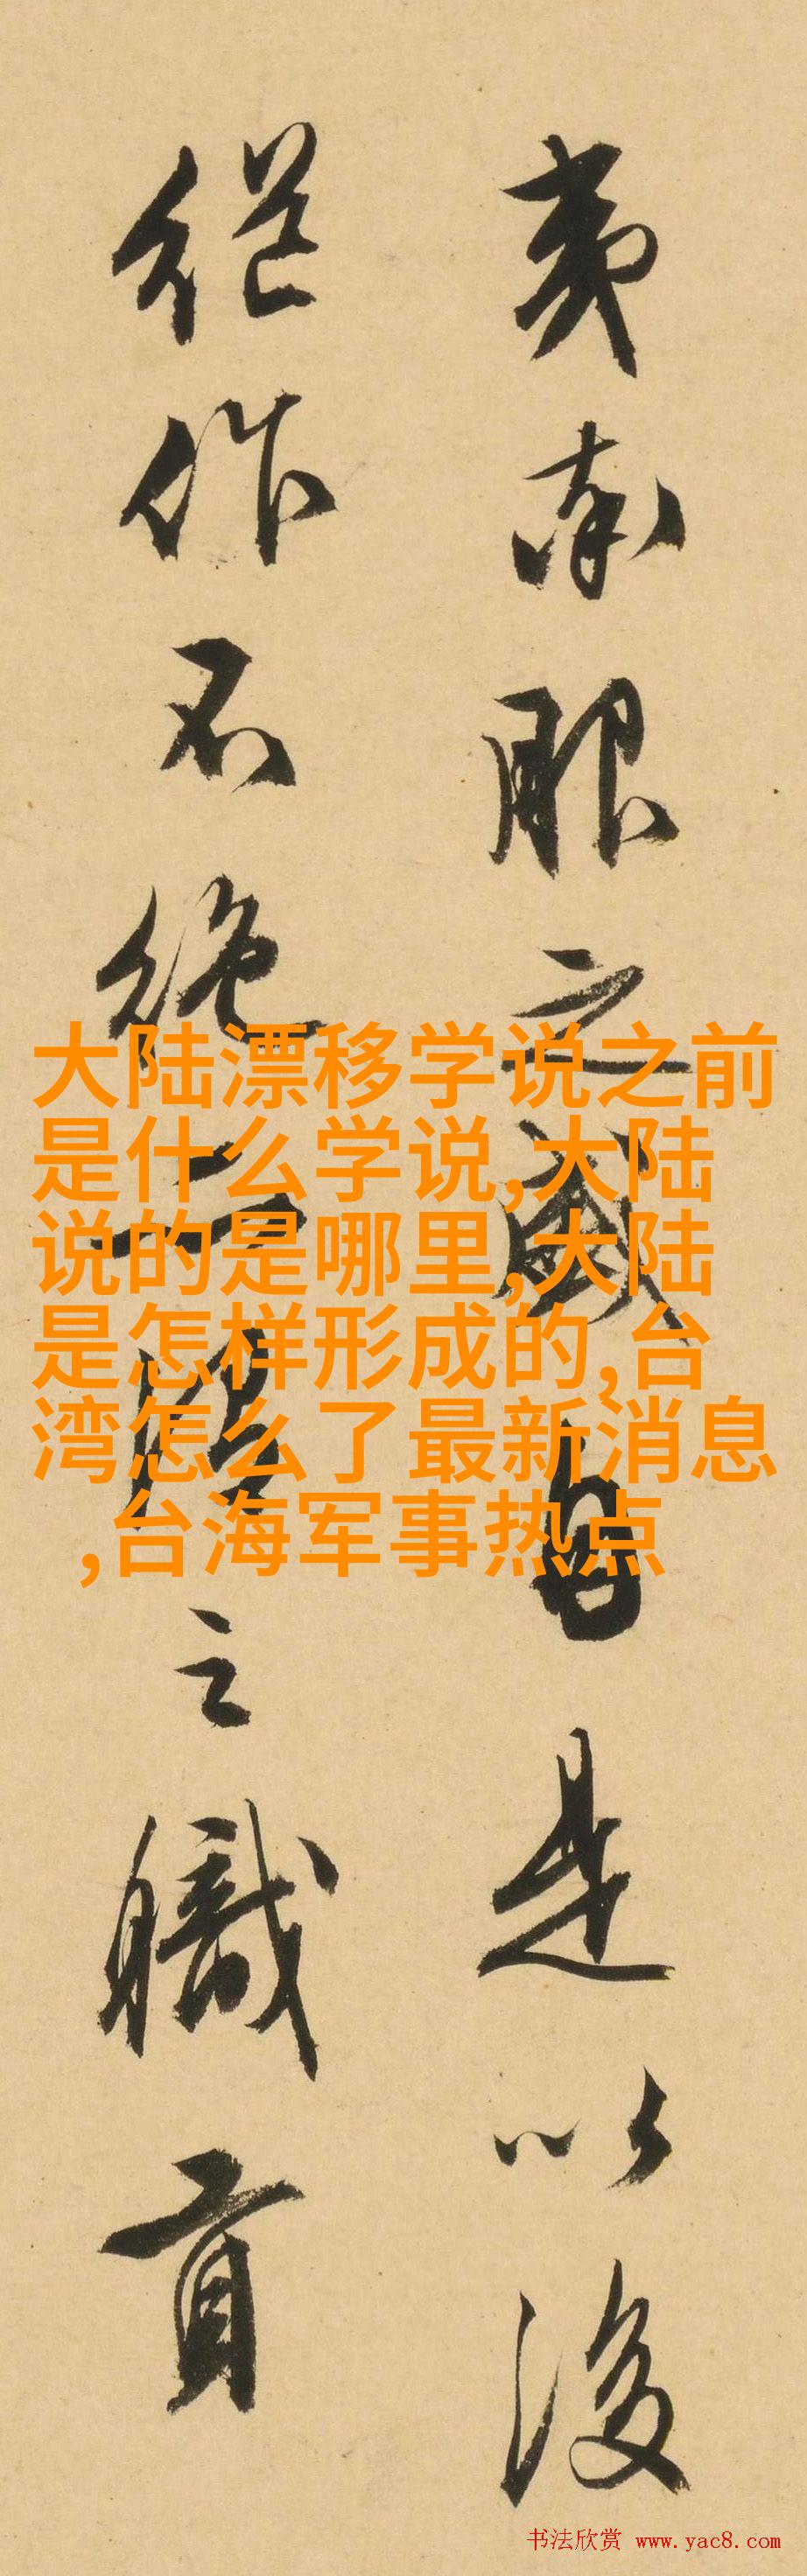 夷南服之自是以後
继作不絶之職貢
大陆漂移学说之前
是什么学说,大陆
说的是哪里,大陆
是怎样形成的,台
湾怎么了最新消息
,台海军事热点
书法欣赏 www.yac8.com